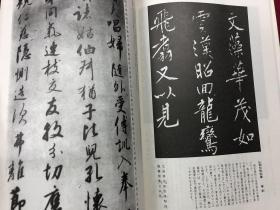 文藻華茂如
雲漢昭回龍鸞
飛翥又以見
唱婦隨外受傅訓入奉
諸姑伯叔猶子比兒孔懷
同氣連枝交友投分切磨
規仁慈隱惻造次弗離節